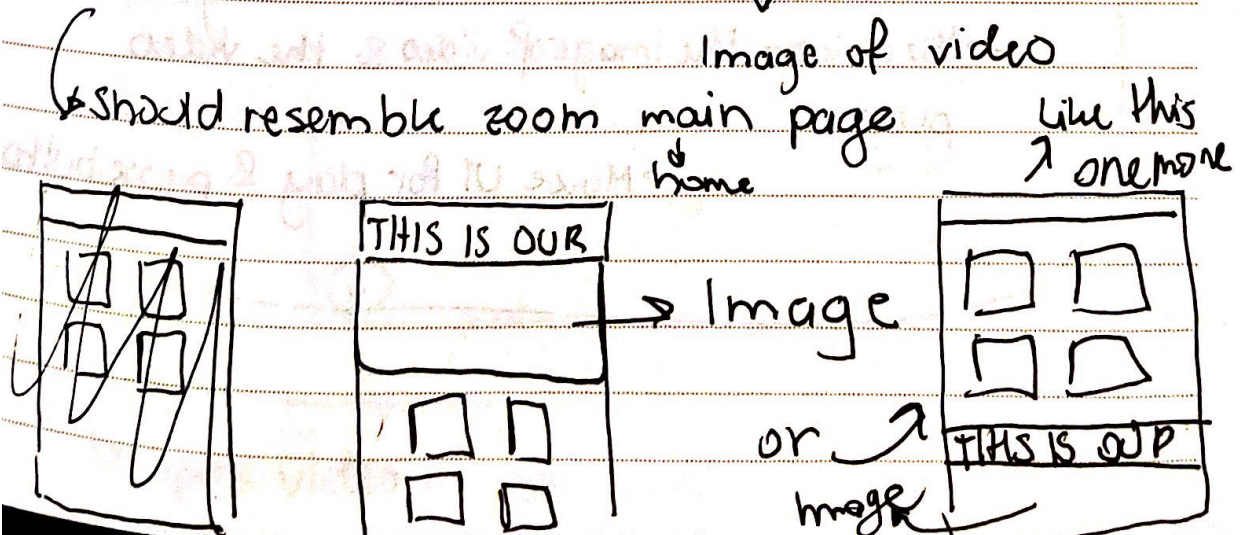 Image of video
should resemble zoom main page
home
Like this
one more
THIS IS OUR
Image
or
THIS IS OUR
Image